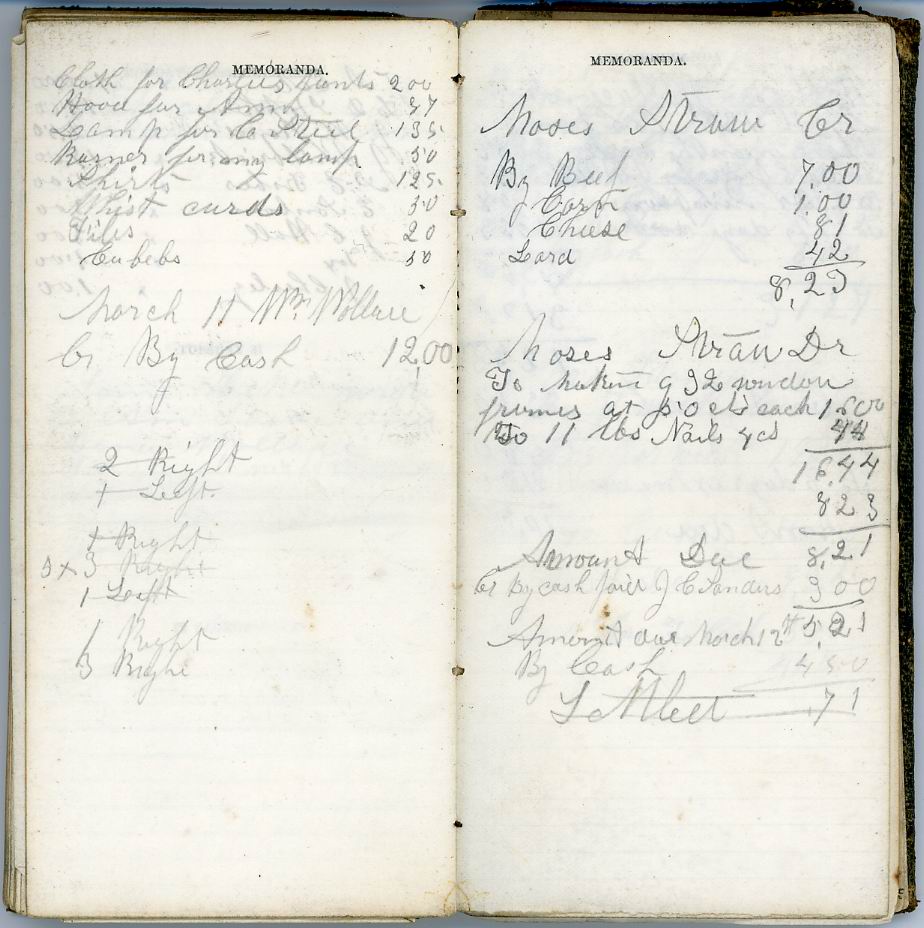 MEMORANDA.
Cloth for Charlies pants 200
Hood for Anna 37
Lamp for C Steel 135
Burner for my lamp 50
Shirts 125
Whist cards 50
Files 20
Cubebs 50
March 11 Wm Wallace
Cr By Cash 12,00
2 Right
1 Left
1 Right
3 Right
1 Left
1 Right
3 Right
MEMORANDA.
Moses Straw Cr
By Beef 7,00
" Corn 1.00
Cheese 81
Lard 42
8,23
Moses Straw Dr
To Making 32 window
frames at 50 cts each 16 00
To 11 lbs Nails 4cs 44
16,44
8 2 3
Amount Due 8,21
Cr By cash paid J C Sanders 3 00
Amount due March 12th 5,21
By Cash 4 50
71